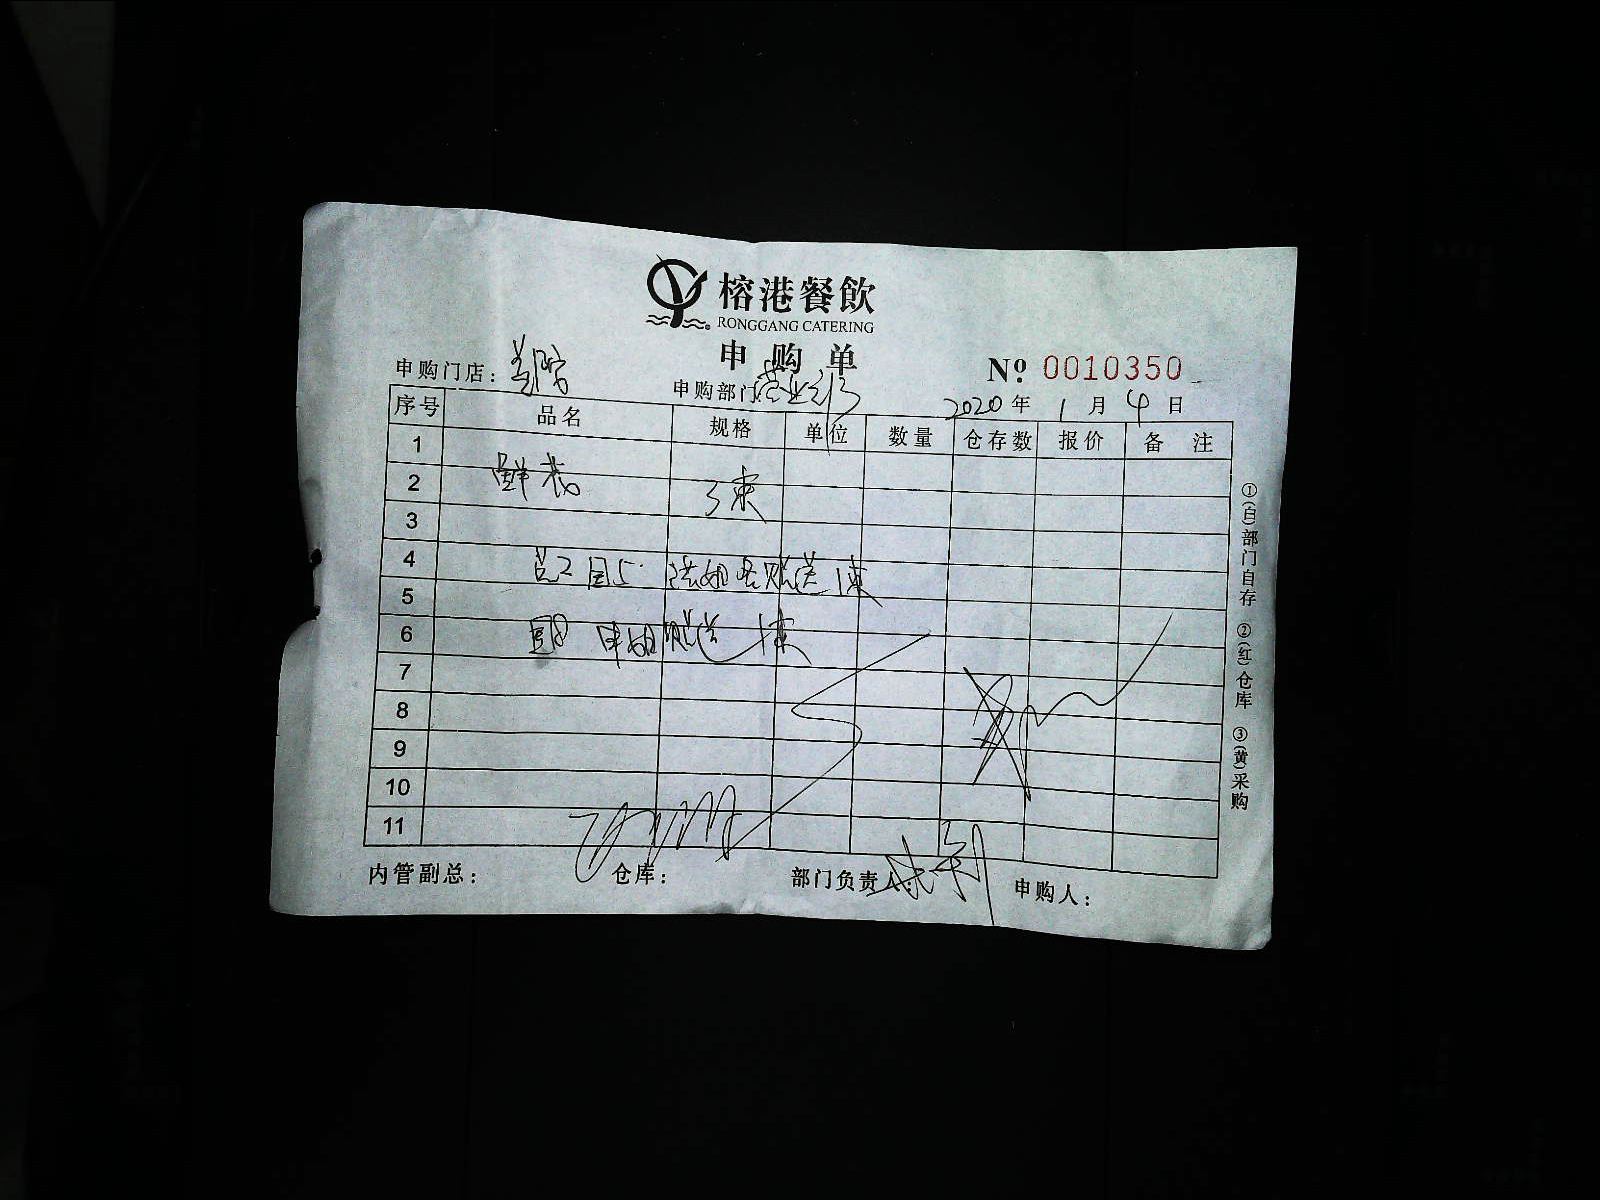 榕港餐飲
RONGGANG CATERING
申购单
申购门店：
申购部门：营业部
№ 0010350
2020年 1月 4日
序号 品名 规格 单位 数量 仓存数 报价 备注
1
2 鲜花 3束
3
4 赠送1束
5
6 赠送1束
7
8
9
10
11
内管副总： 仓库： 部门负责人： 申购人：
①(白)部门自存 ②(红)仓库 ③(黄)采购